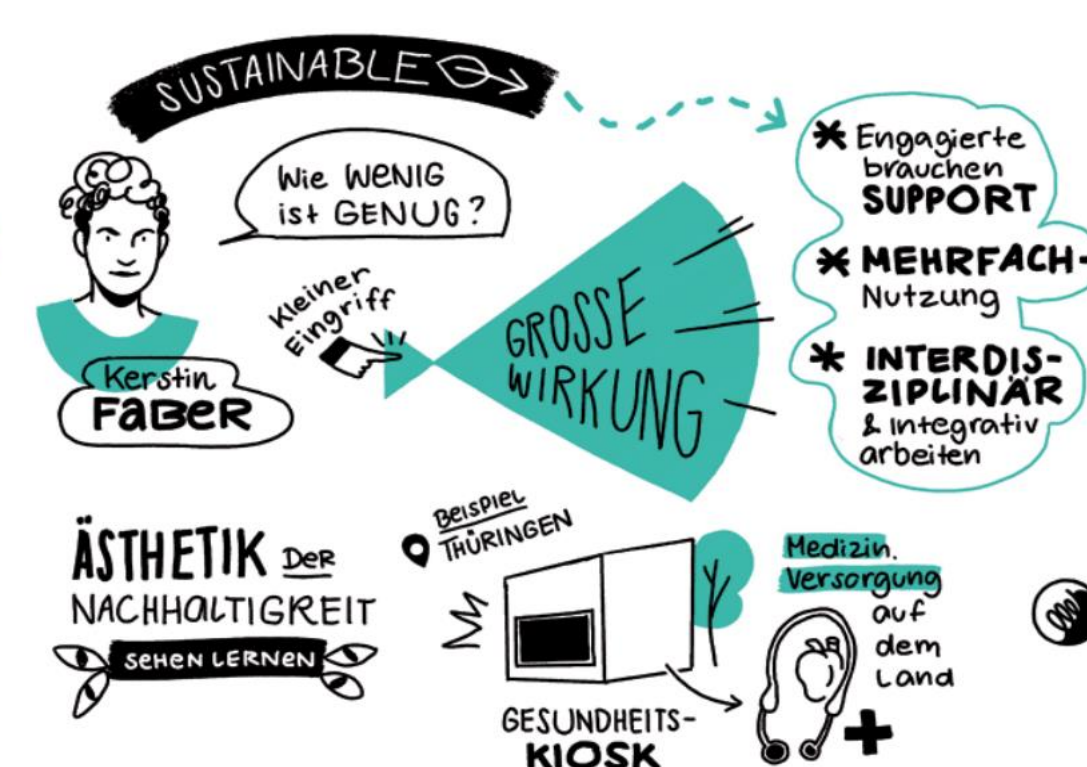 SUSTAINABLE
Wie WENIG
ist GENUG?
Kerstin
FABER
Kleiner
Eingriff
GROSSE
WIRKUNG
* Engagierte
brauchen
SUPPORT
* MEHRFACH-
Nutzung
* INTERDIS-
ZIPLINÄR
& integrativ
arbeiten
ÄSTHETIK DER
NACHHALTIGREIT
SEHEN LERNEN
BEISPIEL
THÜRINGEN
GESUNDHEITS-
KIOSK
Medizin.
Versorgung
auf
dem
Land